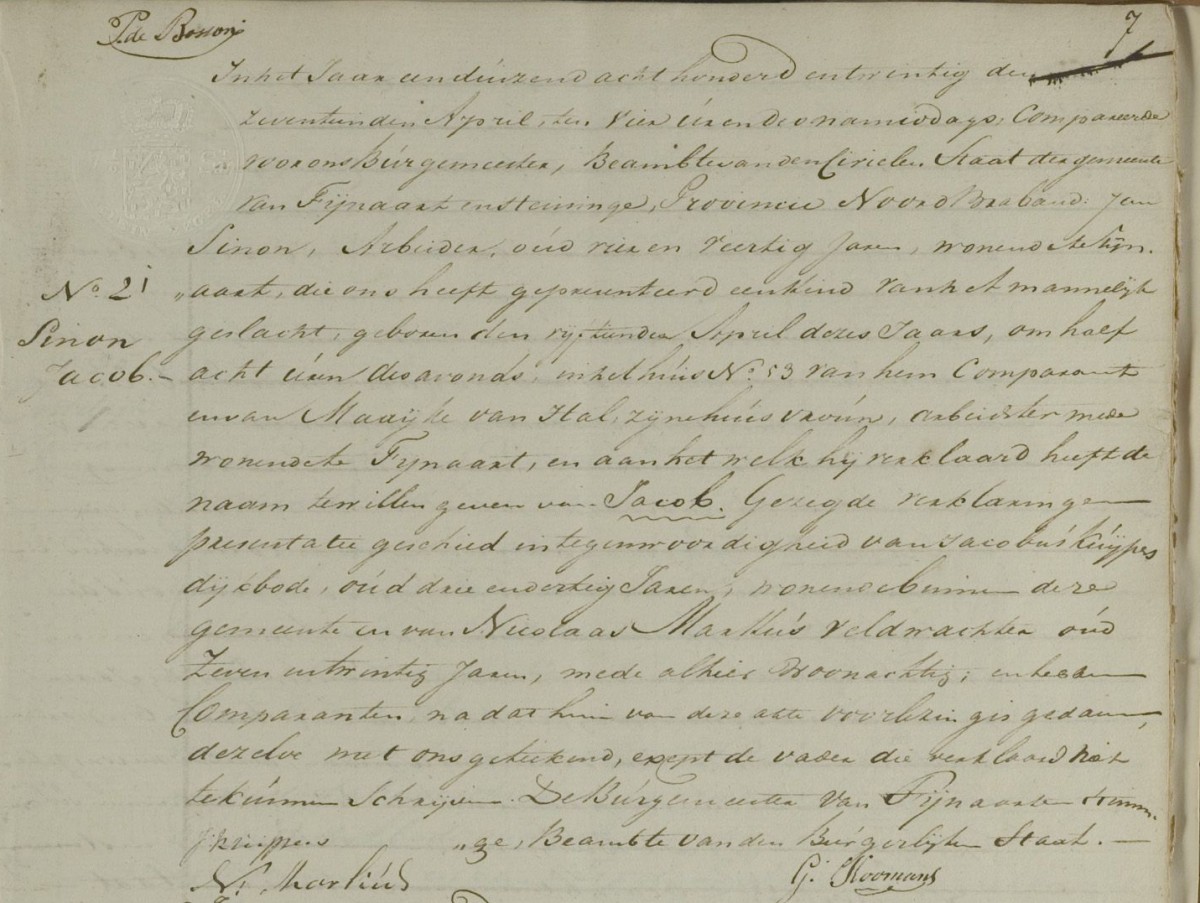 P. de Bosson
7
In het Jaar een duizend acht honderd en twintig den
zeventienden April, ten vier uren des namiddags, Compareerde
voor ons Burgemeester, Beambte van den Civielen Staat der gemeente
van Fijnaart en Heiningen, Provincie Noord Braband: Jan
Sinon, Arbeider, oud vier en veertig Jaren, wonende te Fijn-
N.o 21
„aart, die ons heeft gepresenteerd een kind van het mannelijk
Sinon
geslacht, geboren den vijftienden April dezes Jaars, om half
Jacob.-
acht uren des avonds, in het huis N.o 53 van hem Comparant
en van Maaijke van Stal, zijne huisvrouw, arbeidster mede
wonende te Fijnaart, en aan het welk hij verklaard heeft de
naam te willen geven van Jacob. Gezegde verklaring en
presentatie geschied in tegenwoordigheid van Jacobus Kuijpers
dijkbode, oud drie en dertig Jaren, wonende binnen deze
gemeente en van Nicolaas Markus veldwachter oud
zeven en twintig Jaren, mede alhier woonachtig; en hebben
Comparanten, na dat hun van deze akte voorlezing is gedaan,
dezelve met ons geteekend, except de vader die verklaard niet
te kunnen Schrijven. De Burgemeester van Fijnaart en
„ge, Beambte van den Burgerlijken Staat.-
J Kuijpers
N. Markus
G. Koomans